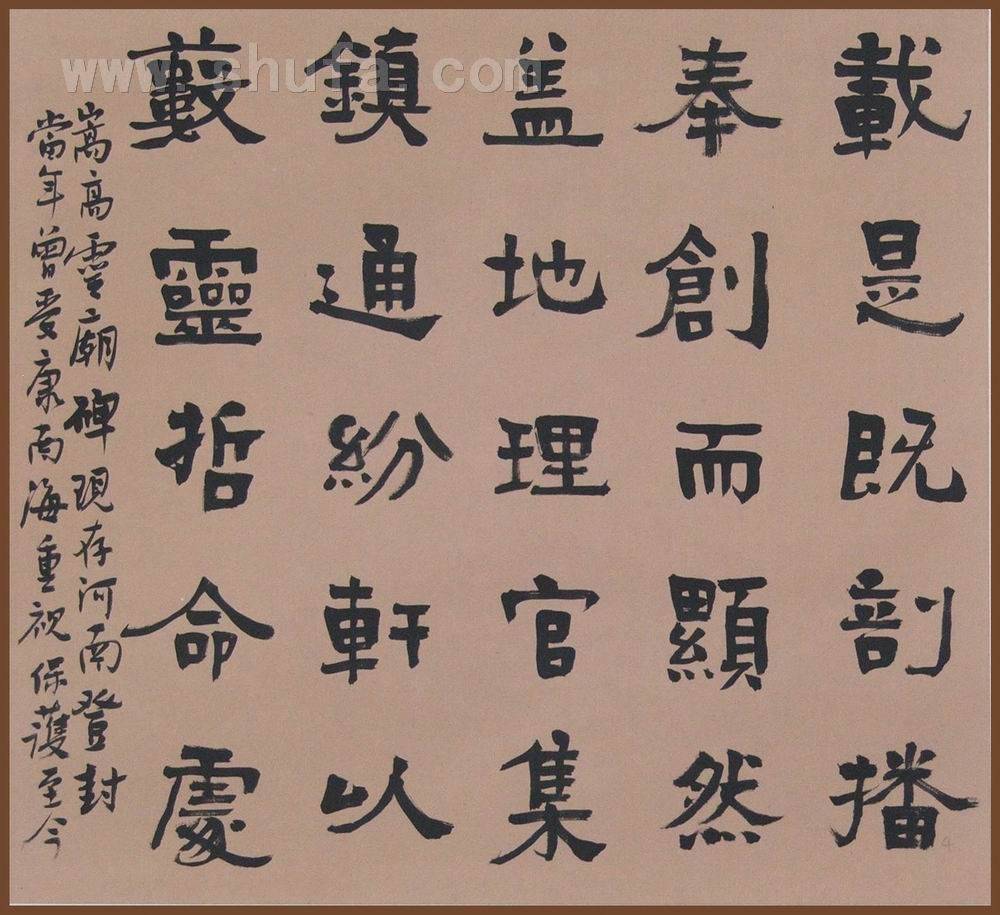 載是既剖播
奉創而顯然
盖地理官集
鎮通紛軒以
藪靈哲命處
嵩高靈廟碑現存河南登封
當年曾受康南海重視保護至今
www.shufa.com